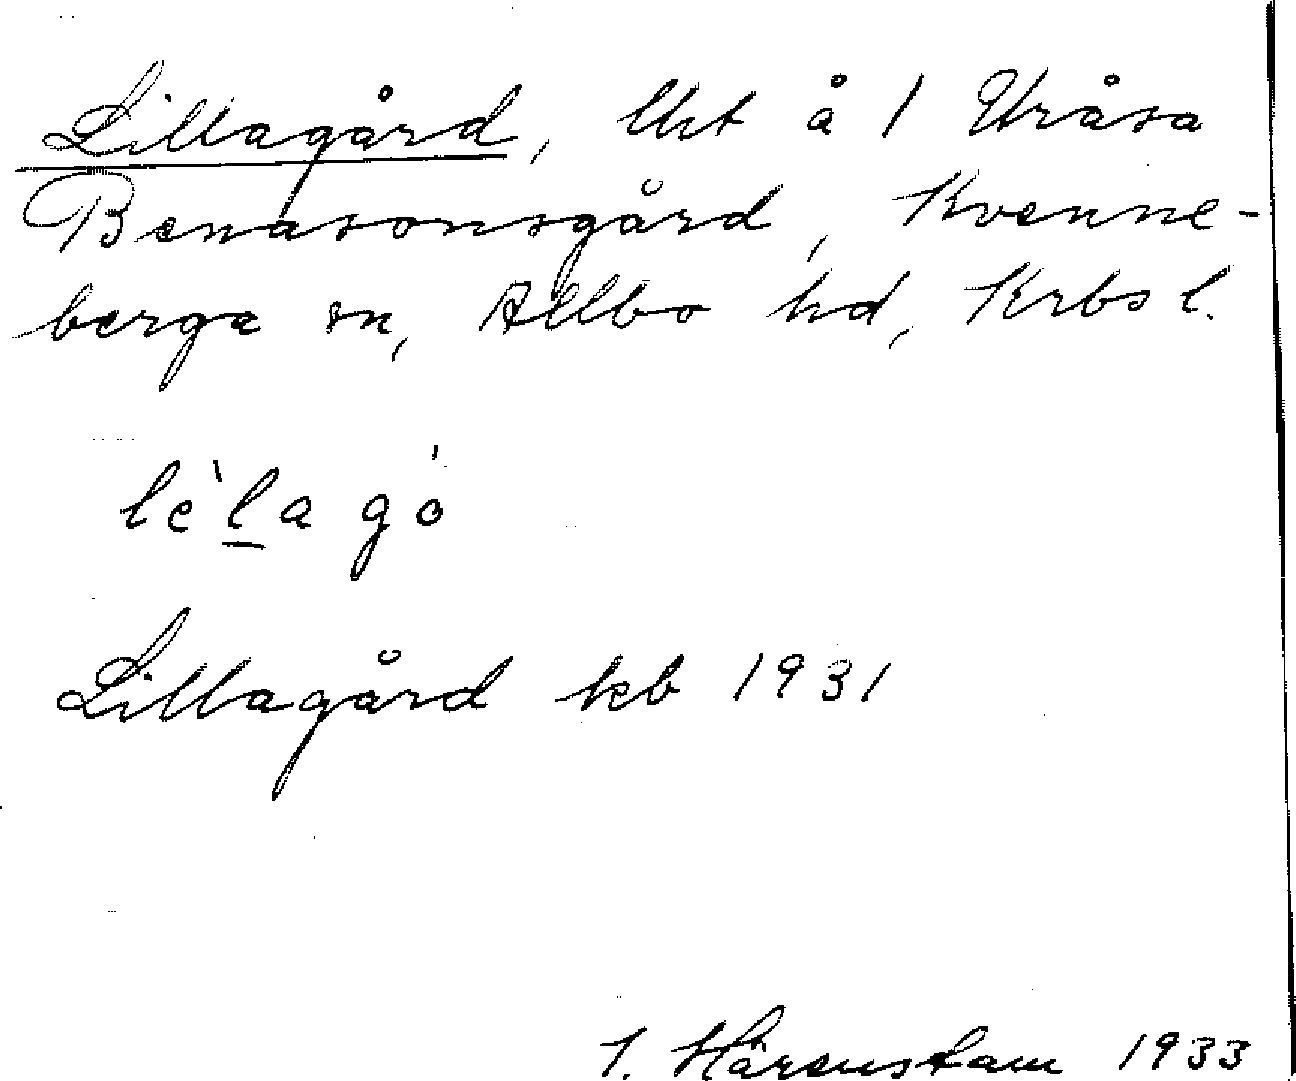 Lillagård, lht å 1 Uråsa
Benasonsgård, Kvenne-
berga sn, Allbo hd, Krbs l.
le`la gó
Lillagård kb 1931
I. Härenstam 1933